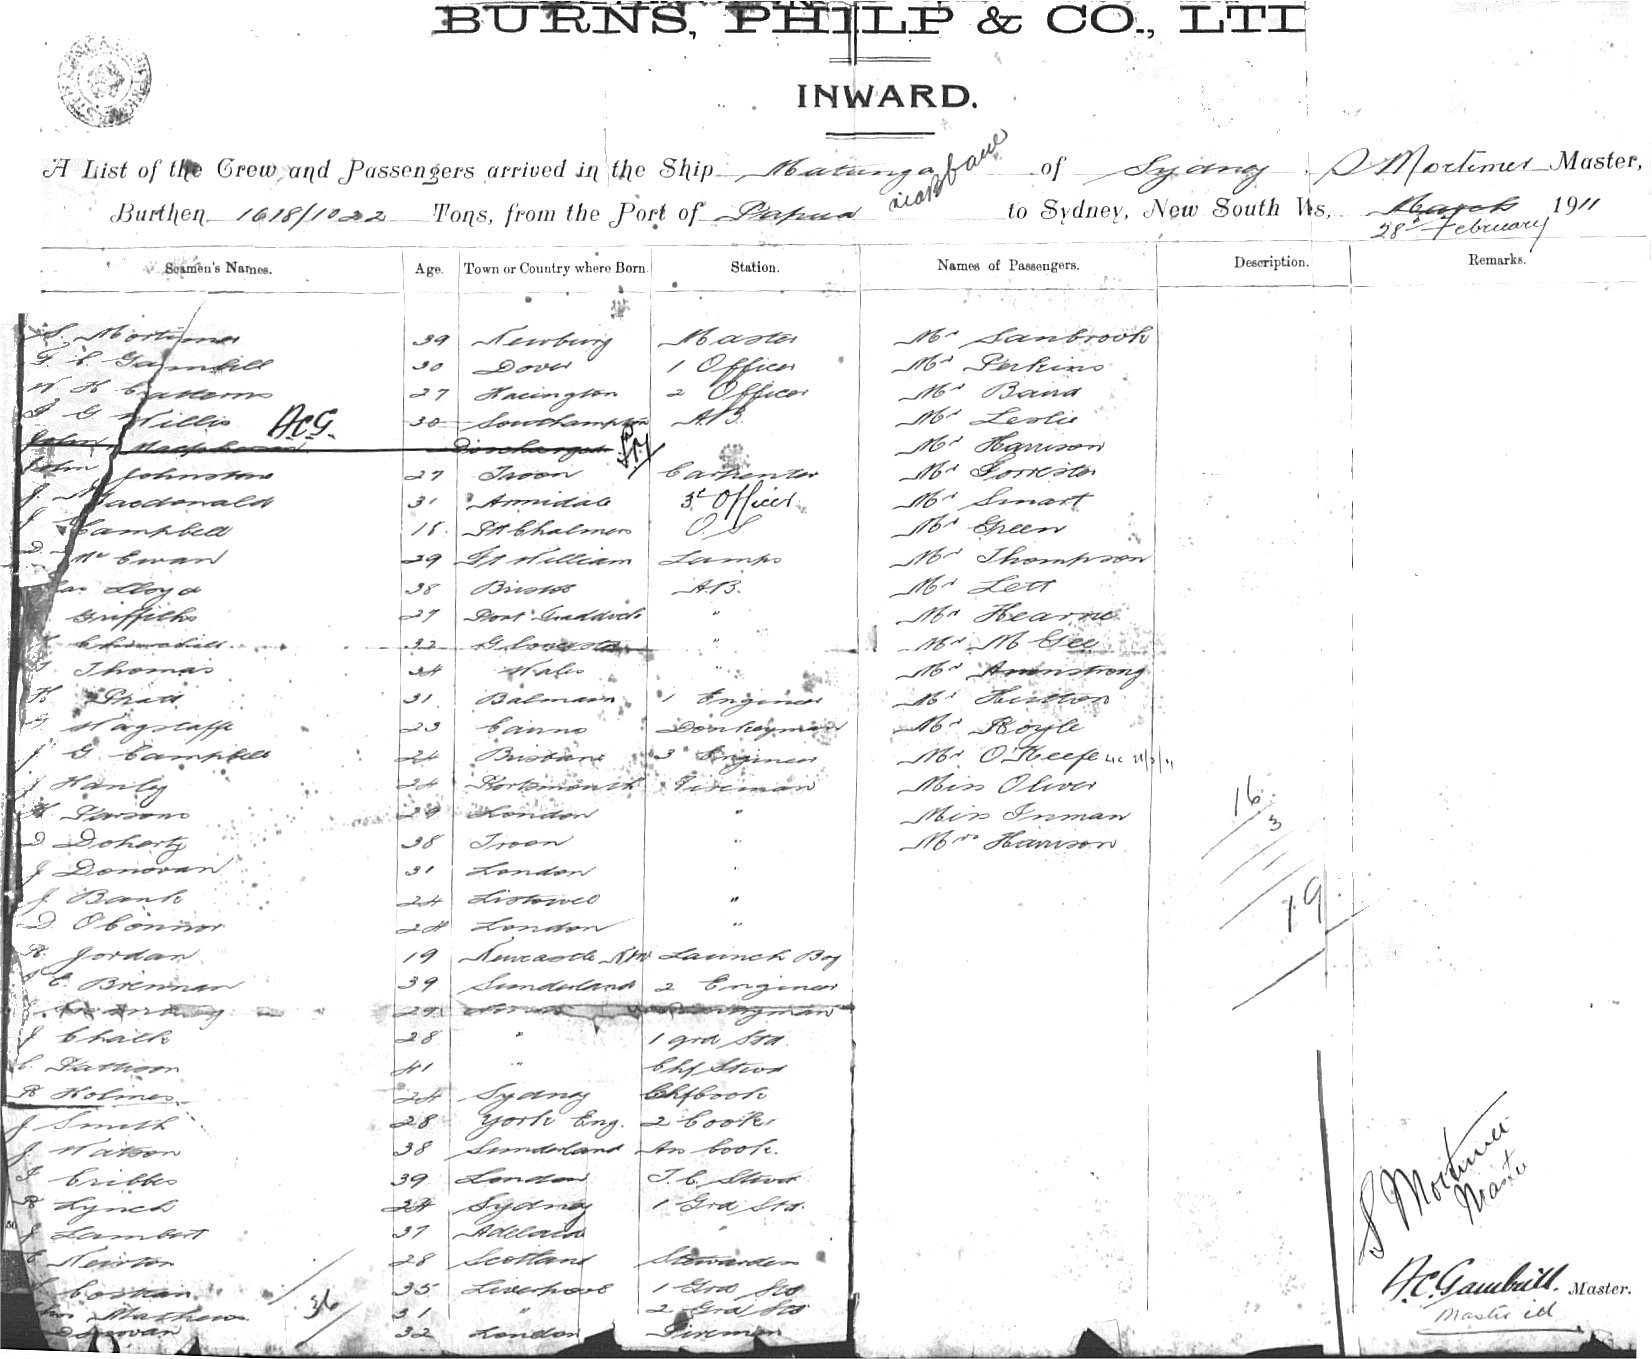 BURNS, PHILP & CO., LTD
INWARD.
A List of the Crew and Passengers arrived in the Ship Matunga of Sydney S Mortimer Master,
Burthen 1618/1022 Tons, from the Port of Papua via Brisbane to Sydney, New South Wales, March 1911
28 February
Seamen's Names. Age. Town or Country where Born. Station. Names of Passengers. Description. Remarks.
S. Mortimer 39 Newburg Master Mr Sanbrook
Gambrill 30 Dover 1 Officer Mr Perkins
W H 27 Harington 2 Officer Mr Baird
G Willis 30 Southampton A.B. Mr Leslie
A.C.G.
John Macpherson Discharged Mr Harrison
John Johnstone 27 Troon Carpenter Mr Forrester
J Macdonald 31 Armidale 3rd Officer Mr Smart
J Campbell 18 Pt Chalmers O.S. Mr Green
D McEwan 29 Ft William Lamps Mr Thompson
Lloyd 38 Bristol A.B. Mr Lett
Griffiths 27 Port " Mr Hearne
Churchill 32 Gloucester " Mr McGee
Thomas 34 Wales " Mr Armstrong
H Pratt 31 Balmain 1 Engineer Mr Hutton
Wagstaffe 23 Cairns Donkeyman Mr Royle
J G Campbell 24 Brisbane 3 Engineer Mr O'Keefe
J Hanley 24 Portsmouth Fireman Miss Oliver
H Parsons 29 London " Miss Inman
D Doherty 38 Troon " Mrs Harrison
16
3
19
J Donovan 31 London "
J Bank 24 Listowel "
D O'Connor 24 London "
R Jordan 19 Newcastle NSW Launch Boy
C. Brennan 39 Sunderland 2 Engineer
29
J Chalk 28 " 1 grd Std.
C. Pattison 41 " Chf Stwd
R Holmes 24 Sydney Chf Cook
J Smith 28 York Eng. 2 Cook
J Watson 38 Sunderland As Cook.
F Cribbes 39 London T.C. Stwd
R Lynch 24 Sydney 1 Grd Std.
J Lambert 37 Adelaide "
Newton 28 Scotland Stewardess
Costain 35 Liverpool 1 Grd Std
Mathews 31 " 2 Grd Std
Donovan 32 London Fireman
36
S Mortimer
Master
A.C. Gambrill. Master.